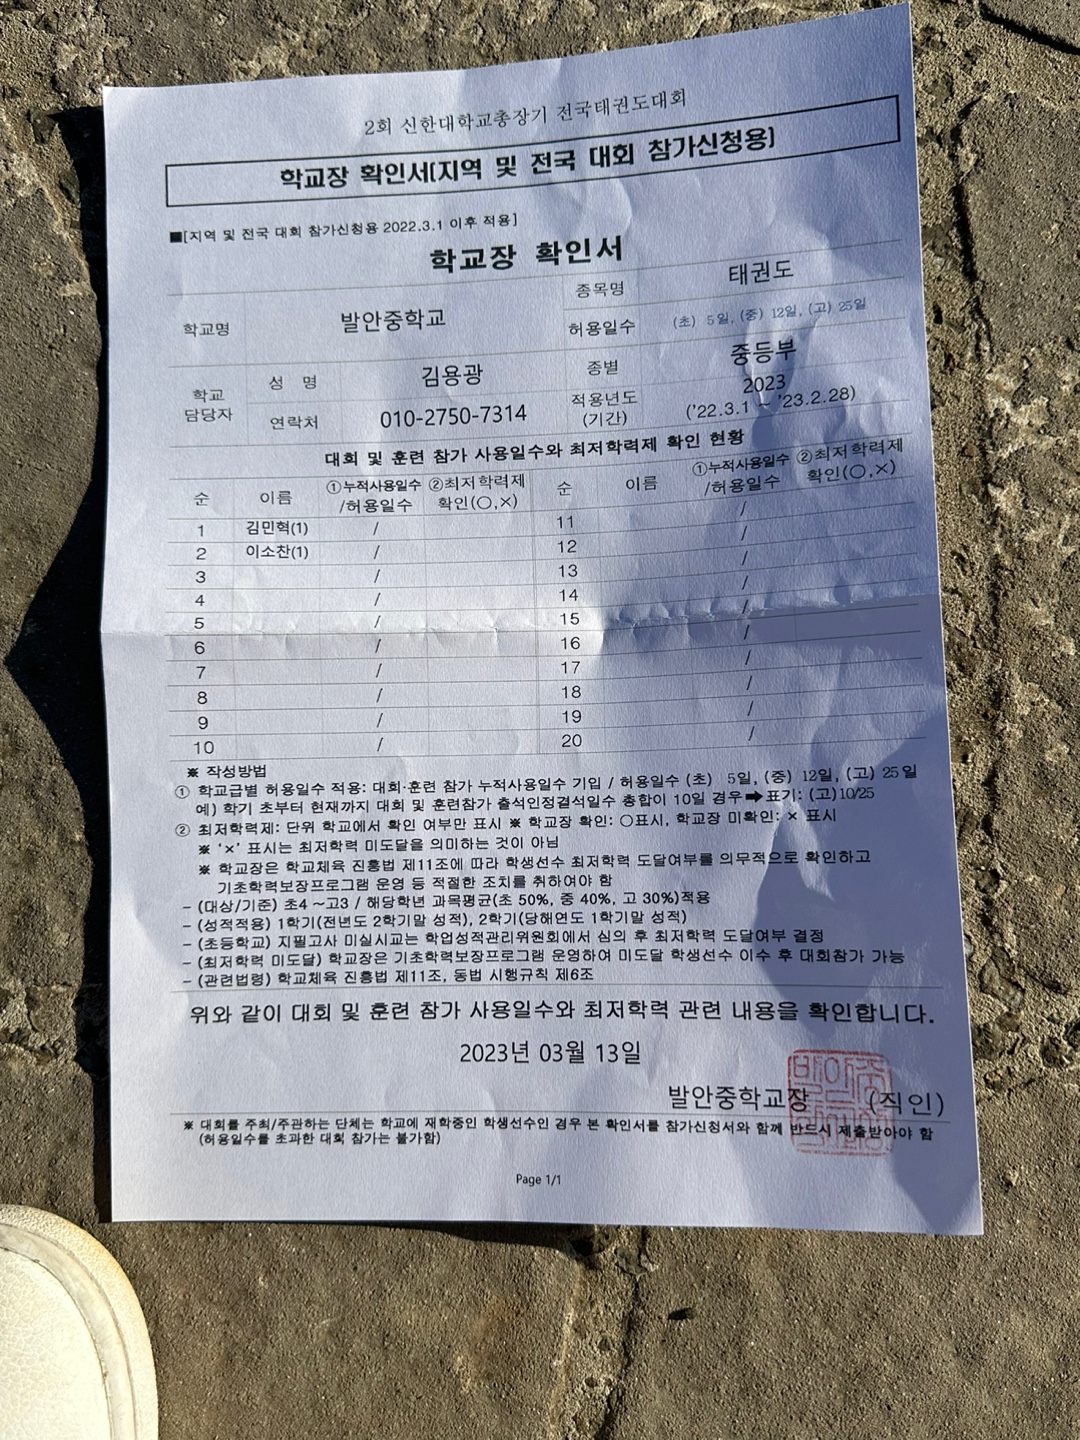 2회 신한대학교총장기 전국태권도대회
학교장 확인서(지역 및 전국 대회 참가신청용)
■[지역 및 전국 대회 참가신청용 2022.3.1 이후 적용]
학교장 확인서
학교명 발안중학교 종목명 태권도
허용일수 (초) 5일, (중) 12일, (고) 25일
학교 담당자 성 명 김용광 종별 중등부
연락처 010-2750-7314 적용년도 (기간) 2023 ('22.3.1 ~ '23.2.28)
대회 및 훈련 참가 사용일수와 최저학력제 확인 현황
순 이름 ①누적사용일수 /허용일수 ②최저학력제 확인(○,×) 순 이름 ①누적사용일수 /허용일수 ②최저학력제 확인(○,×)
1 김민혁(1) / 11 /
2 이소찬(1) / 12 /
3 / 13 /
4 / 14 /
5 / 15 /
6 / 16 /
7 / 17 /
8 / 18 /
9 / 19 /
10 / 20 /
※ 작성방법
① 학교급별 허용일수 적용: 대회·훈련 참가 누적사용일수 기입 / 허용일수 (초) 5일, (중) 12일, (고) 25일
예) 학기 초부터 현재까지 대회 및 훈련참가 출석인정결석일수 총합이 10일 경우➡표기: (고)10/25
② 최저학력제: 단위 학교에서 확인 여부만 표시 ※ 학교장 확인: ○표시, 학교장 미확인: × 표시
※ '×' 표시는 최저학력 미도달을 의미하는 것이 아님
※ 학교장은 학교체육 진흥법 제11조에 따라 학생선수 최저학력 도달여부를 의무적으로 확인하고
기초학력보장프로그램 운영 등 적절한 조치를 취하여야 함
- (대상/기준) 초4 ~고3 / 해당학년 과목평균(초 50%, 중 40%, 고 30%)적용
- (성적적용) 1학기(전년도 2학기말 성적), 2학기(당해연도 1학기말 성적)
- (초등학교) 지필고사 미실시교는 학업성적관리위원회에서 심의 후 최저학력 도달여부 결정
- (최저학력 미도달) 학교장은 기초학력보장프로그램 운영하여 미도달 학생선수 이수 후 대회참가 가능
- (관련법령) 학교체육 진흥법 제11조, 동법 시행규칙 제6조
위와 같이 대회 및 훈련 참가 사용일수와 최저학력 관련 내용을 확인합니다.
2023년 03월 13일
발안중학교장 (직인)
※ 대회를 주최/주관하는 단체는 학교에 재학중인 학생선수인 경우 본 확인서를 참가신청서와 함께 반드시 제출받아야 함
(허용일수를 초과한 대회 참가는 불가함)
Page 1/1